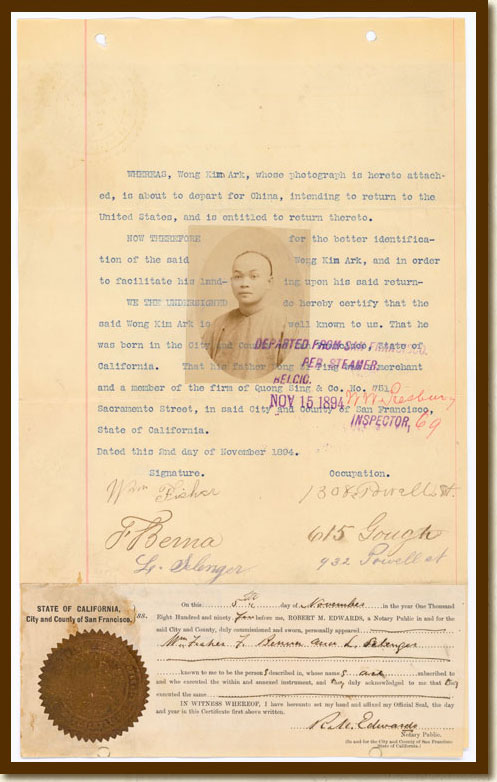 WHEREAS, Wong Kim Ark, whose photograph is hereto attach-
ed, is about to depart for China, intending to return to the
United States, and is entitled to return thereto.
NOW THEREFORE for the better identifica-
tion of the said Wong Kim Ark, and in order
to facilitate his land- ing upon his said return-
WE THE UNDERSIGNED do hereby certify that the
said Wong Kim Ark is well known to us. That he
was born in the City and State of
California. That his father merchant
and a member of the firm of Quong Sing & Co. No. 751
Sacramento Street, in said City and County of San Francisco,
State of California.
DEPARTED FROM SAN FRANCISCO,
PER STEAMER,
BELGIC,
NOV 15 1894
INSPECTOR, 69
Dated this 2nd day of November 1894.
Signature. Occupation.
Wm Fisher 1308 Powell St.
F Benna 615 Gough
L. Selenger 932 Powell st
STATE OF CALIFORNIA,
City and County of San Francisco, ss.
On this 5th day of November in the year One Thousand
Eight Hundred and ninety four before me, ROBERT M. EDWARDS, a Notary Public in and for the
said City and County, duly commissioned and sworn, personally appeared
Wm. Fisher F. Benna and L. Selenger
known to me to be the persons described in, whose names are subscribed to
and who executed the within and annexed instrument, and they duly acknowledged to me that they
executed the same
IN WITNESS WHEREOF, I have hereunto set my hand and affixed my Official Seal, the day
and year in this Certificate first above written.
R. M. Edwards
Notary Public.
(In and for the City and County of San Francisco
State of California.)